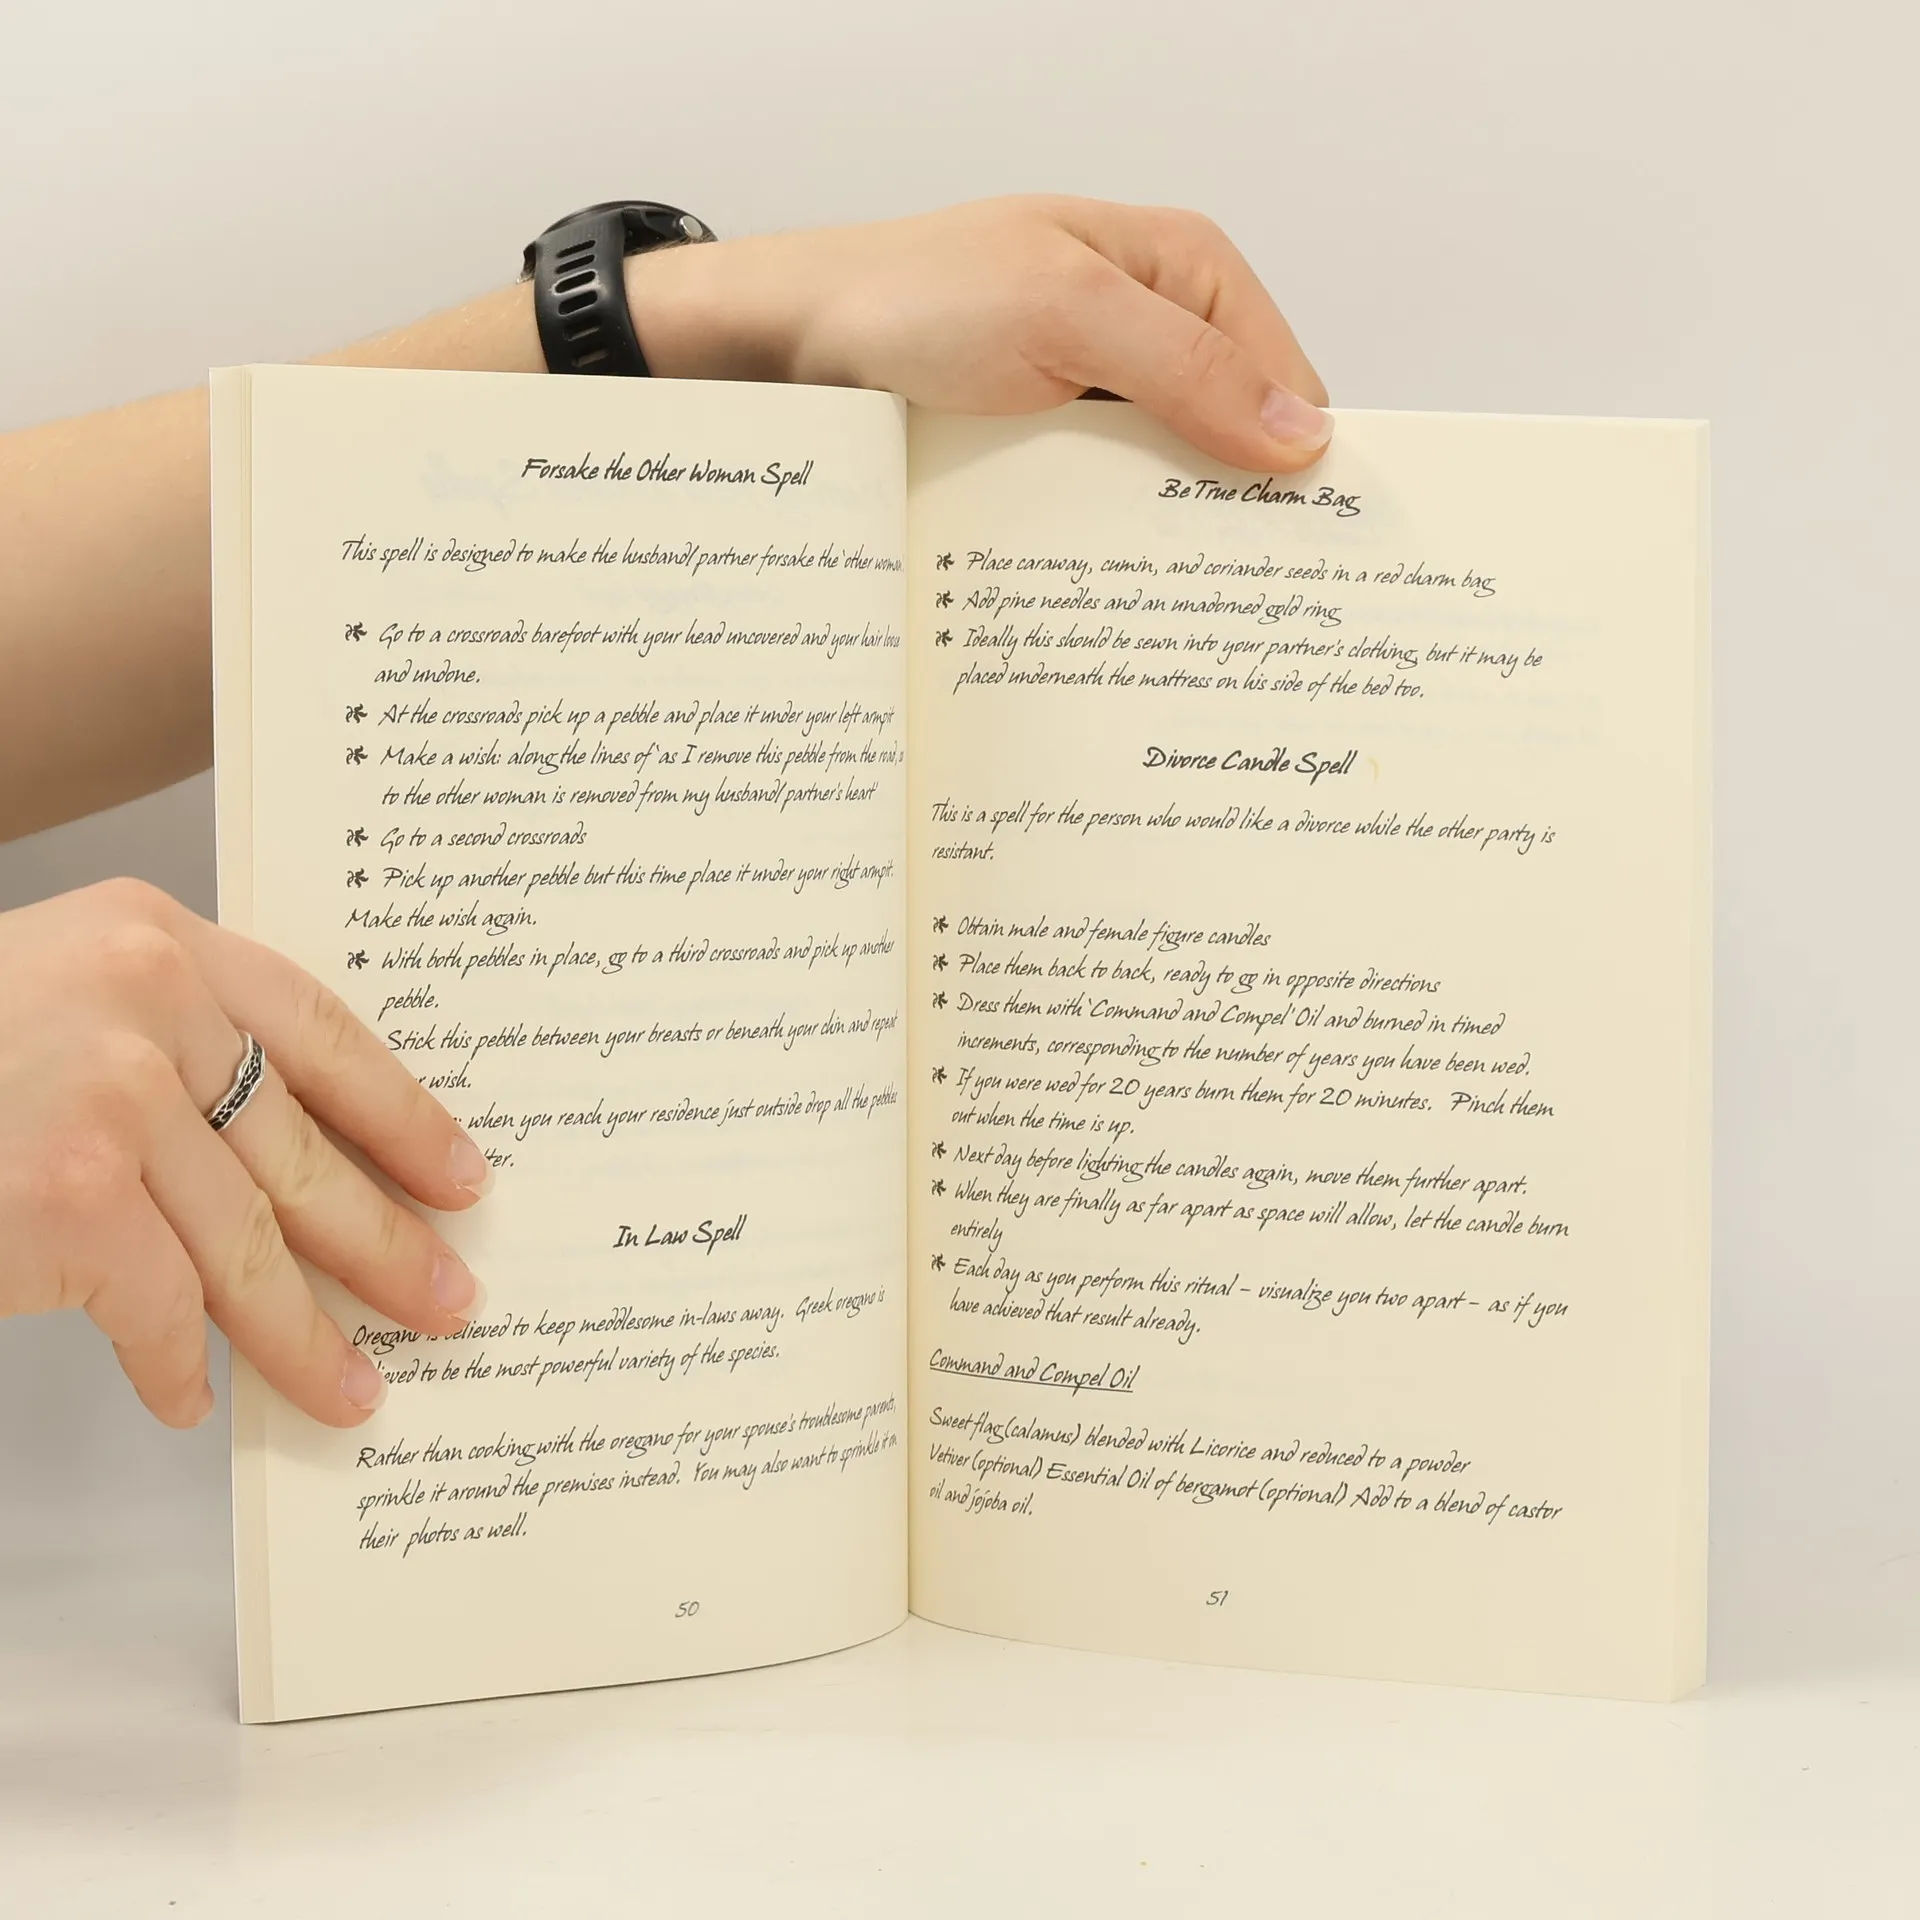 Forsake the Other Woman Spell
This spell is designed to make the husband/partner forsake the 'other woman.
Go to a crossroads barefoot with your head uncovered and your hair loose
and undone.
At the crossroads pick up a pebble and place it under your left armpit
Make a wish: along the lines of 'as I remove this pebble from the road,
to the other woman is removed from my husband/partner's heart'
Go to a second crossroads
Pick up another pebble but this time place it under your right armpit.
Make the wish again.
With both pebbles in place, go to a third crossroads and pick up another
pebble.
Stick this pebble between your breasts or beneath your chin and repeat
wish.
when you reach your residence just outside drop all the pebbles
In Law Spell
Oregano is believed to keep meddlesome in-laws away. Greek oregano is
to be the most powerful variety of the species.
Rather than cooking with the oregano for your spouse's troublesome parents,
sprinkle it around the premises instead. You may also want to sprinkle it on
their photos as well.
50
Be True Charm Bag
Place caraway, cumin, and coriander seeds in a red charm bag
Add pine needles and an unadorned gold ring
Ideally this should be sewn into your partner's clothing, but it may be
placed underneath the mattress on his side of the bed too.
Divorce Candle Spell
This is a spell for the person who would like a divorce while the other party is
resistant.
Obtain male and female figure candles
Place them back to back, ready to go in opposite directions
Dress them with 'Command and Compel' Oil and burned in timed
increments, corresponding to the number of years you have been wed.
If you were wed for 20 years burn them for 20 minutes. Pinch them
out when the time is up.
Next day before lighting the candles again, move them further apart.
When they are finally as far apart as space will allow, let the candle burn
entirely
Each day as you perform this ritual – visualize you two apart – as if you
have achieved that result already.
Command and Compel Oil
Sweet flag (calamus) blended with Licorice and reduced to a powder
Vetiver (optional) Essential Oil of bergamot (optional) Add to a blend of castor
oil and jojoba oil.
51